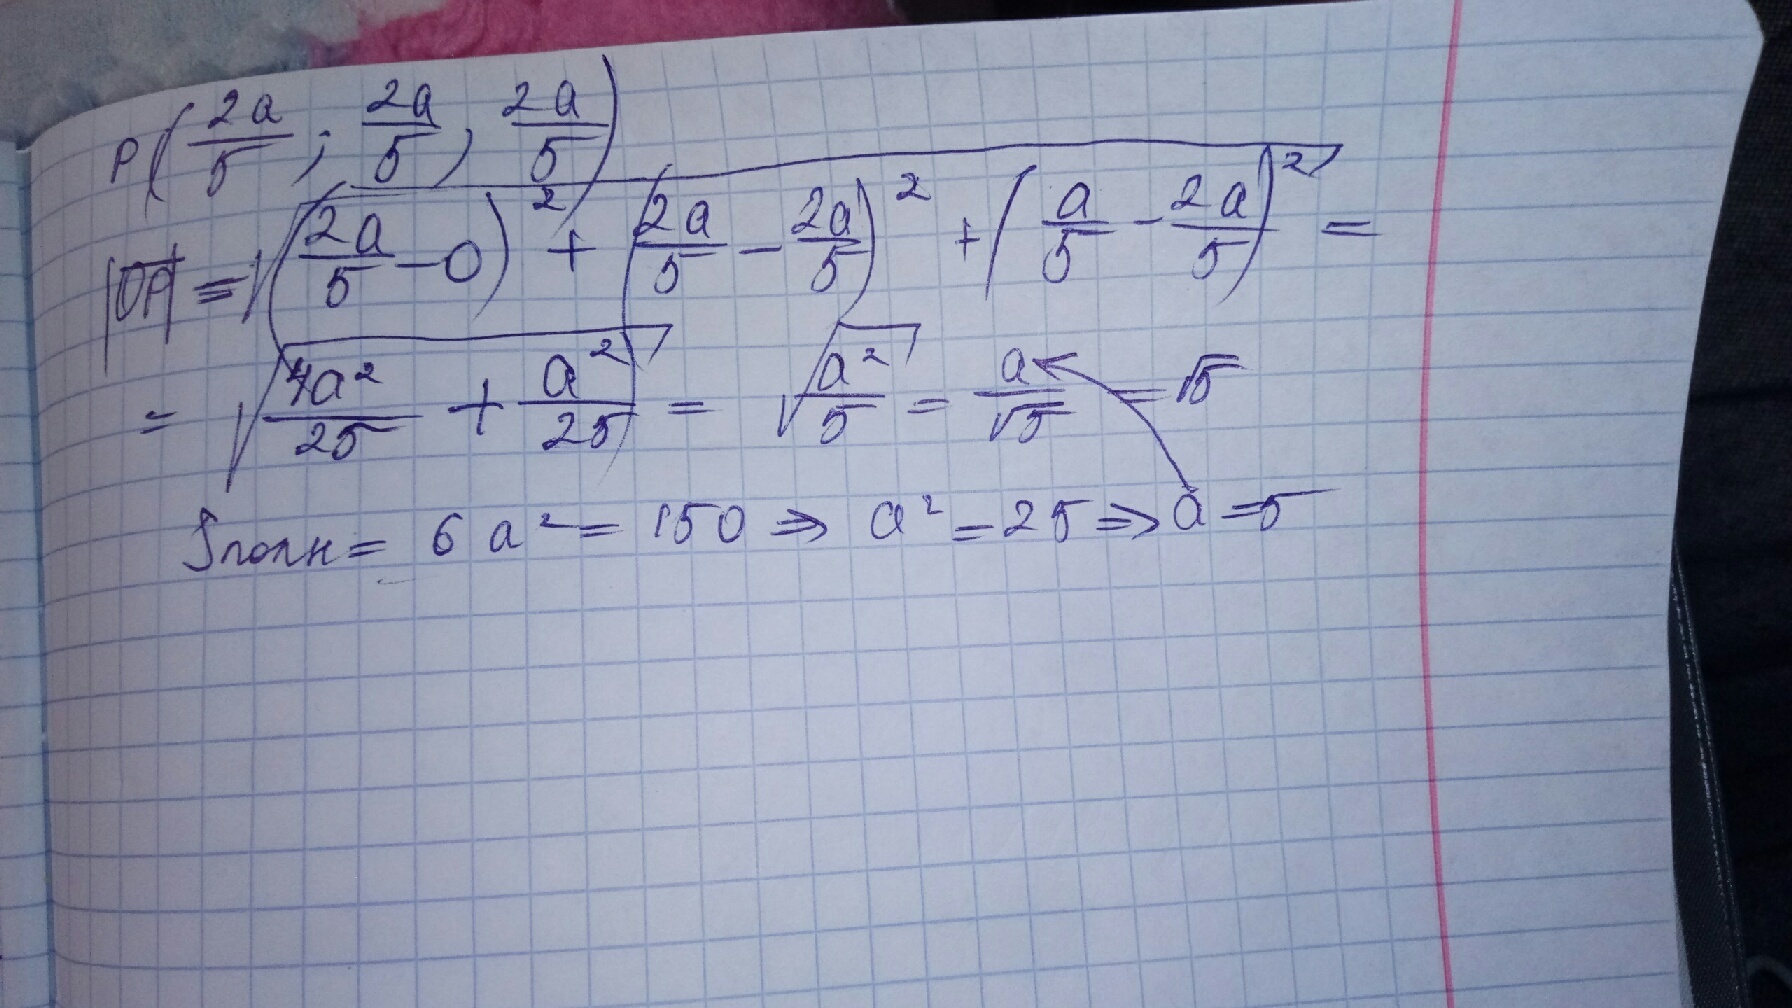 P(2a/5; 2a/5, 2a/5)
|OP| = √((2a/5 - 0)² + (2a/5 - 2a/5)² + (a/5 - 2a/5)²) =
= √(4a²/25 + a²/25) = √(a²/5) = a/√5 = √5
Sполн = 6a² = 150 ⇒ a² = 25 ⇒ a = 5